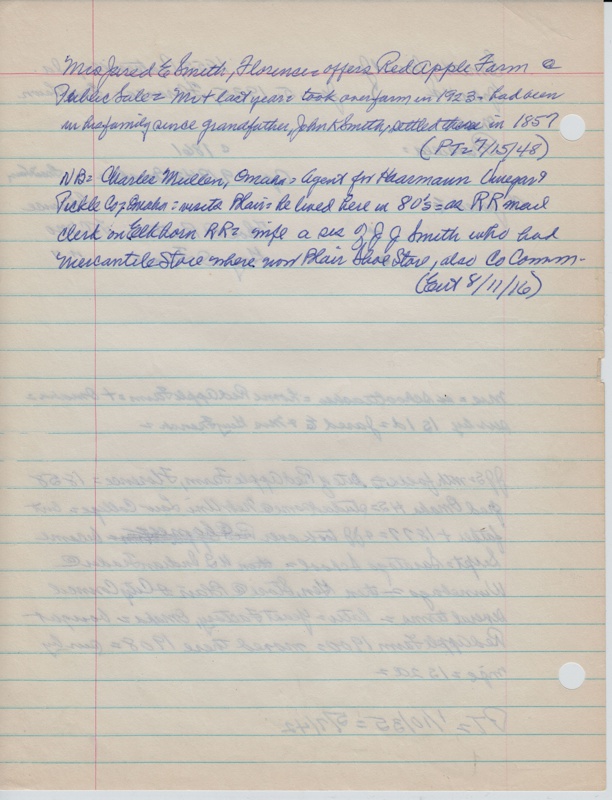 Mrs Jared E Smith, Florence = offers Red Apple Farm @
Public Sale = Mr + last year = took over farm in 1923 - had been
in his family since grandfather, John K Smith, settled there in 1857
(PT = 7/15/48)
NB = Charlie Mullen, Omaha = agent for Haarmann Vinegar &
Pickle Co, Omaha = visits Blair = he lived here in 80's = as RR mail
clerk on Elkhorn RR = wife a sis of J J Smith who had
Mercantile Store where now Blair Shoe Store, also Co Comm -
(Ent 8/11/16)